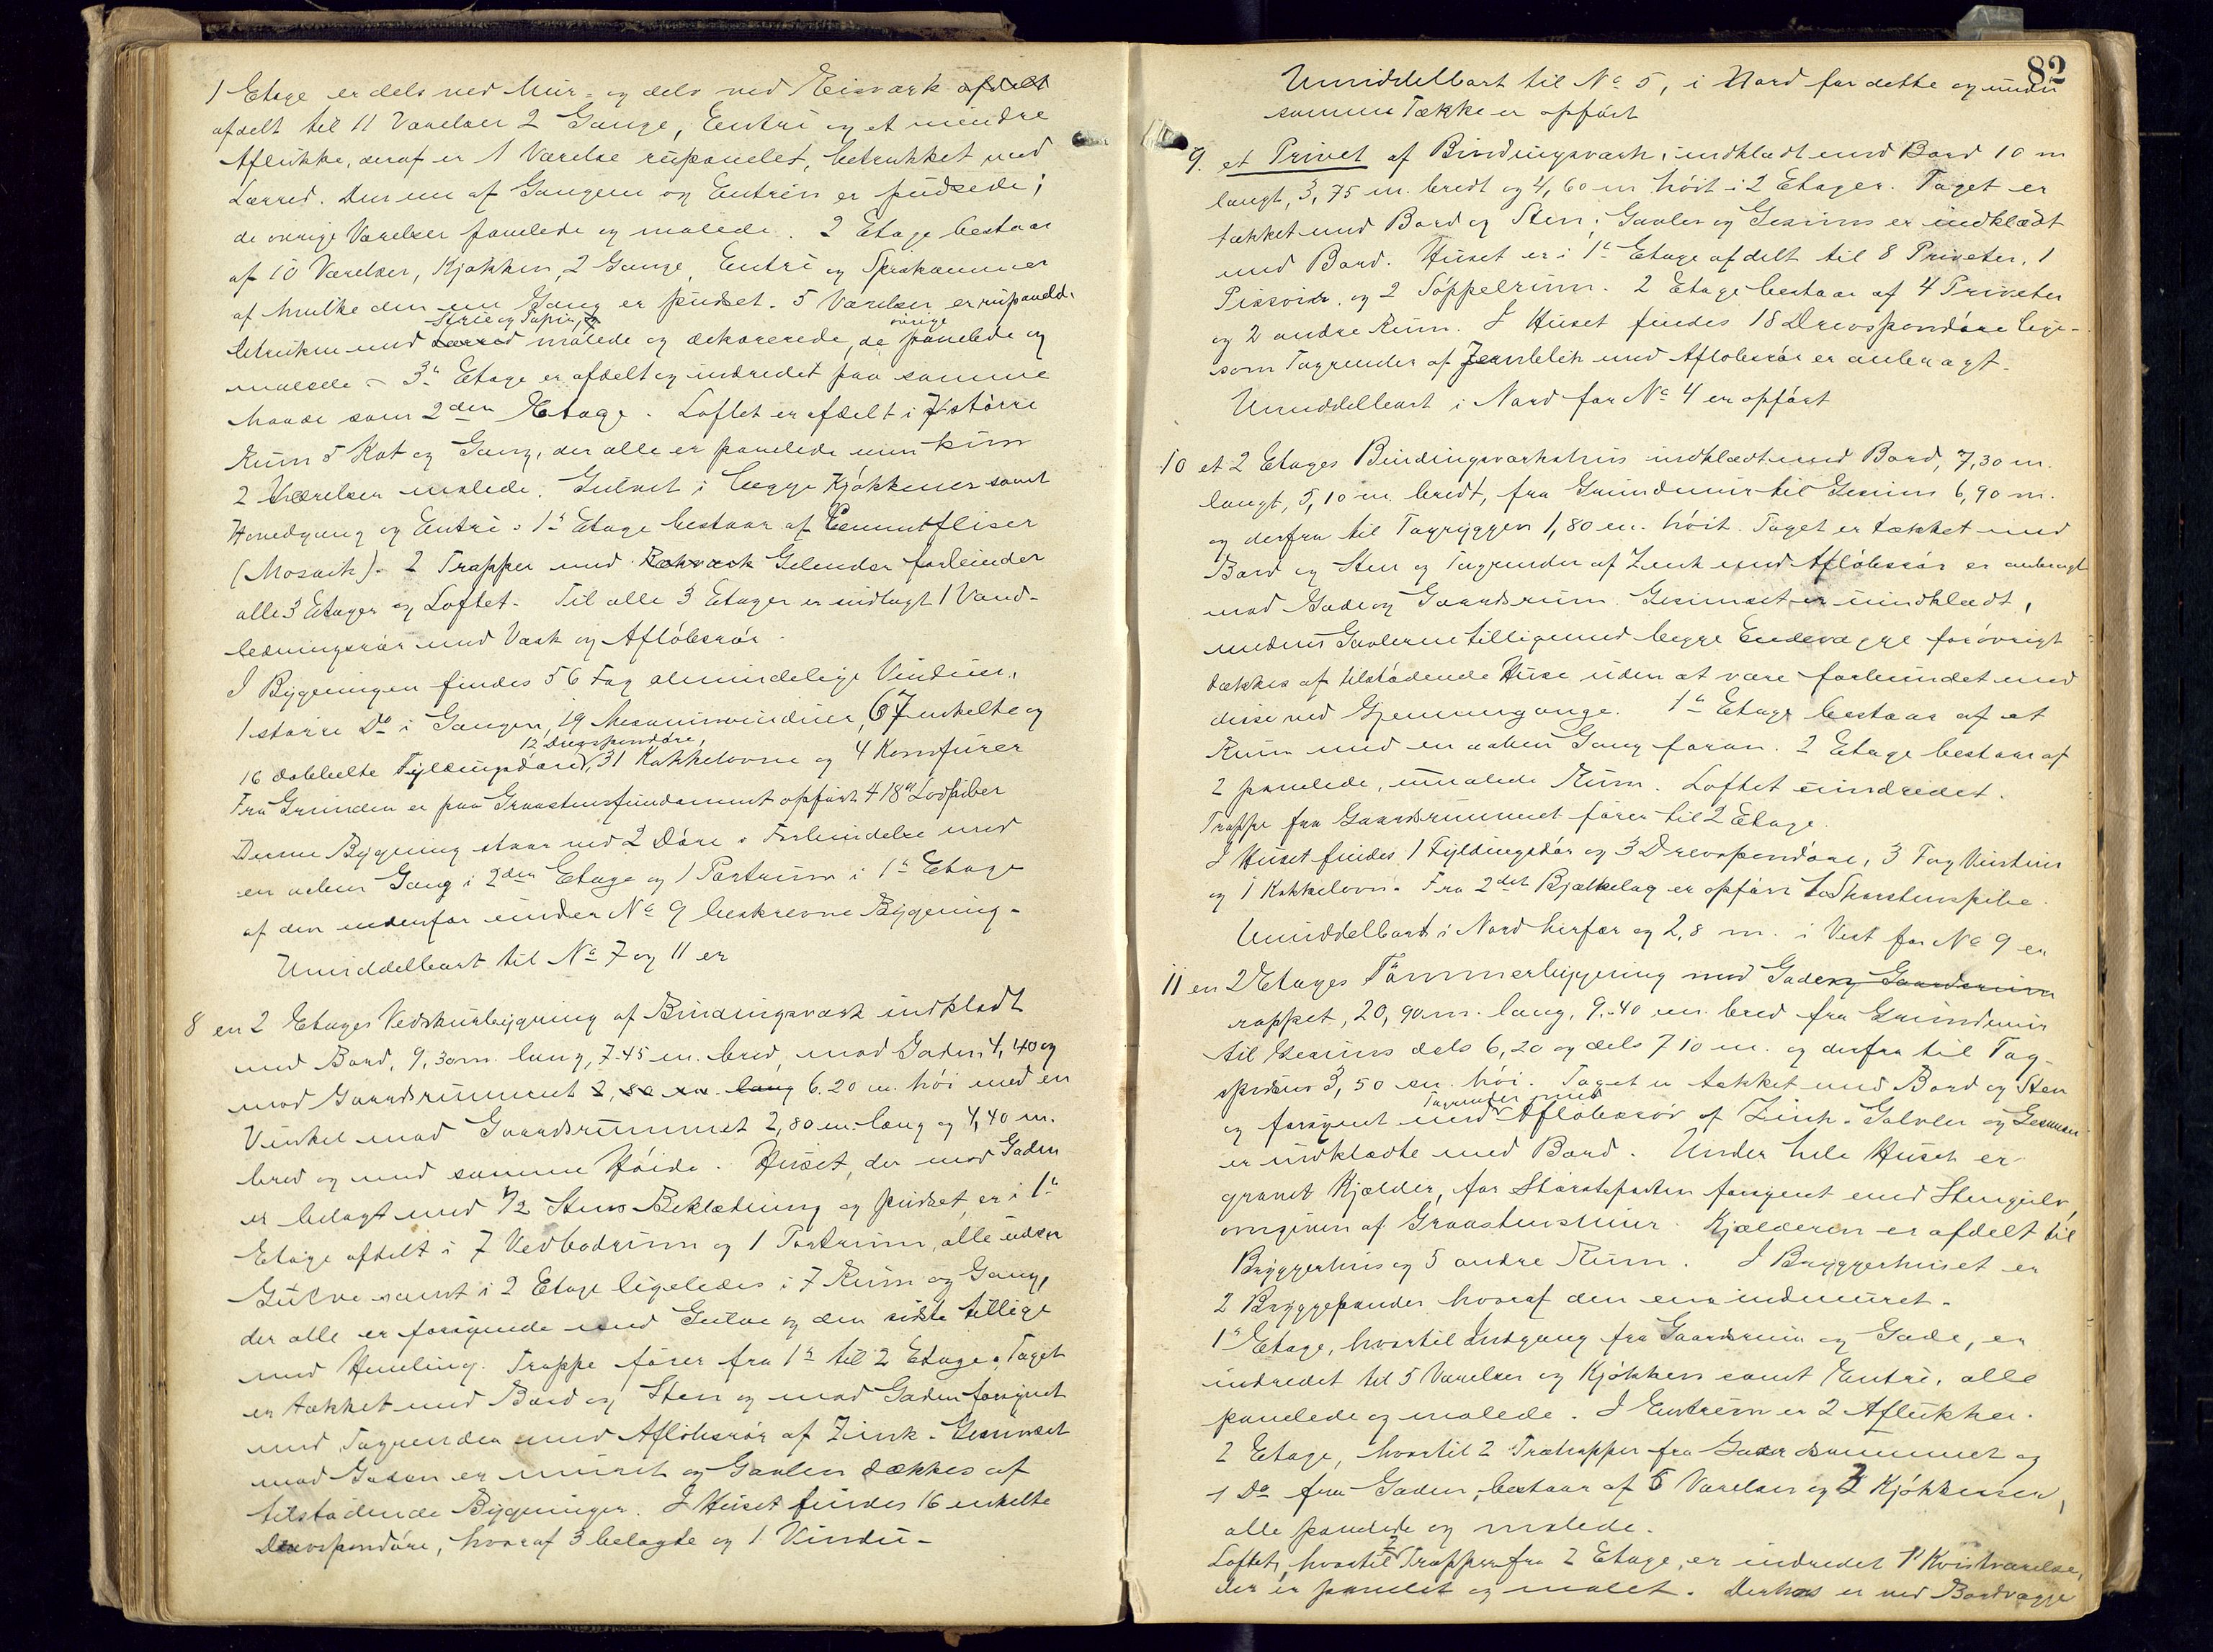 1 Etage er dels ved Mur- og dels ved Reisværk afdelt
afdelt til 11 Værelser 2 Gange, Entré og et mindre
Aflukke, deraf er 1 Værelse rupanelet, betrukket med
Lærred. Den ene af Gangene og Entréen er pudsede;
de øvrige Værelser panelede og malede. 2 Etage bestaar
af 10 Værelser, Kjøkken, 2 Gange, Entré og Spisekammer
af hvilke den ene Gang er pudset. 5 Værelser er rupaneld.
Strie og Tapet, og
betrukne med Lærred malede og dekorerede, de øvrige panelede og
malede - 3die Etage er afdelt og indredet paa samme
Maade som 2den Etage. Loftet er afdelt i 7 større
Rum 5 Kot og Gang, der alle er panelede men kun
2 Værelser malede. Gulvet i begge Kjøkkener samt
Hovedgang og Entré i 1ste Etage bestaar af Cementfliser
(Mosaik). 2 Trapper med Rækværk Gelender forbinder
alle 3 Etager og Loftet. Til alle 3 Etager er indlagt 1 Vand-
ledningsrør med Vask og Afløbsrør.
I Bygningen findes 56 Fag almindelige Vinduer,
1 større Do i Gangen, 19 Mesaninvinduer, 67 enkelte og
12 Drevspendøre,
16 dobbelte Fyldingsdøre, 31 Kakkelovne og 4 Komfurer
Fra Grunden er paa Graastensfundament opført 4 18" Lodpiber
Denne Bygning staar ved 2 Døre i Forbindelse med
en aaben Gang i 2den Etage og 1 Portrum i 1ste Etage
af den nedenfor under No 9 beskrevne Bygning-
Umiddelbart til No 7 og 11 er
8 en 2 Etages Vedskurbygning af Bindingsværk indklædt
med Bord, 9,30 m. lang, 7.45 m. bred, mod Gaden 4,40 og
mod Gaardsrummet 2,80 m. lang 6.20 m. høi med en
Vinkel mod Gaardsrummet 2,80 m. lang og 4,40 m.
bred og med samme Høide. Huset, der mod Gaden
er belagt med 1/2 Stens Beklædning og pudset, er i 1ste
Etage afdelt i 7 Vedbodrum og 1 Portrum, alle uden
Gulve samt i 2 Etage ligeledes i 7 Rum og Gang,
der alle er forsynede med Gulve og den sidste tillige
med Himling. Trappe fører fra 1ste til 2 Etage. Taget
er tækket med Bord og Sten og mod Gaden forsynet
med Tagrender med Afløbsrør af Zink. Gesimset
mod Gaden er muret og Gavlen dækkes af
tilstødende Bygninger. I Huset findes 16 enkelte
Drevspendøre, hvoraf 3 belagte og 1 Vindu-
82
Umiddelbart til No 5, i Nord for dette og under
samme Tække er opført
9. et Privet af Bindingsværk, indklædt med Bord 10 m
langt, 3,75 m. bredt og 4,60 m høit i 2 Etager. Taget er
tækket med Bord og Sten; Gavler og Gesims er indklædt
med Bord. Huset er i 1ste Etage afdelt til 8 Priveter, 1
Pissoir og 2 Søppelrum. 2 Etage bestaar af 4 Priveter
og 2 andre Rum. I Huset findes 18 Drevspendøre lige-
som Tagrender af Jernblik med Afløbsrør er anbragt.
Umiddelbart i Nord for No 4 er opført
10 et 2 Etages Bindingsværkshus indklædt med Bord, 7,30 m.
langt, 5,10 m. bredt, fra Grundmur til Gesims 6,90 m.
og derfra til Tagryggen 1,80 m. høit. Taget er tækket med
Bord og Sten og Tagrender af Zink med Afløbsrør er anbragt
mod Gade og Gaardsrum. Gesimset er uindklædt,
medens Gavlerne tilligemed begge Endevægge forøvrigt
dækkes af tilstødende Huse uden at være forbundet med
disse ved Gjennemgange. 1ste Etage bestaar af et
Rum med en aaben Gang foran. 2 Etage bestaar af
2 panelede, umalede Rum. Loftet uindredet.
Trappe fra Gaardsrummet fører til 2 Etage.
I Huset findes 1 Fyldingsdør og 3 Drevspendøre, 3 Fag Vinduer
og 1 Kakkelovn. Fra 2det Bjælkelag er opført 1 Skorstenspibe.
Umiddelbart i Nord herfor og 2,8 m. i Vest for No 9 er
11 en 2 Etages Tømmerbygning mod Gaden og Gaardsrum
rappet, 20,90 m. lang, 9.40 m. bred fra Grundmur
til Gesims dels 6,20 og dels 7 10 m. og derfra til Tag-
spidsen 3,50 m. høi. Taget er tækket med Bord og Sten
Tagrender med
og forsynet med Afløbsrør af Zink. Gavler og Gesimser
er indklædte med Bord. Under hele Huset er
gravet Kjælder, for Størsteparten forsynet med Stengulv,
omgiven af Graastensmur. Kjælderen er afdelt til
Bryggerhus og 5 andre Rum. I Bryggerhuset er
2 Bryggepander hvoraf den ene indmuret.
1ste Etage, hvortil Indgang fra Gaardsrum og Gade, er
indredet til 5 Værelser og Kjøkken samt Entré, alle
panelede og malede. I Entréen er 2 Aflukker.
2 Etage, hvortil 2 Trætrapper fra Gaardsrummet og
1 Do fra Gaden, bestaar af 5 Værelser og 2 Kjøkkener,
alle panelede og malede.
Loftet, hvortil 2 Trapper fra 2 Etage, er indredet 1 Kvistværelse,
der er panelet og malet. Derhos er ved Bordvægge